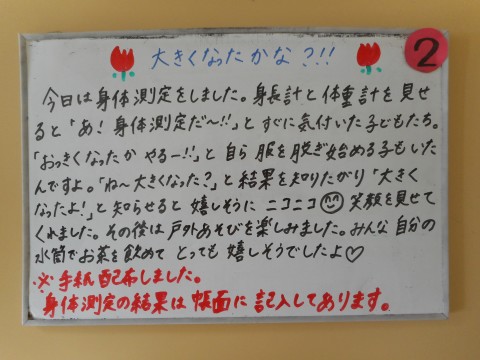 大きくなったかな?!!
2
今日は身体測定をしました。身長計と体重計を見せ
ると「あ!身体測定だ〜!!」とすぐに気付いた子どもたち。
「おっきくなったか やるー!!」と自ら服を脱ぎ始める子もいた
んですよ。「ね〜大きくなった?」と結果を知りたがり「大きく
なったよ!」と知らせると嬉しそうにニコニコ笑顔を見せて
くれました。その後は戸外あそびを楽しみました。みんな自分の
水筒でお茶を飲めてとっても嬉しそうでしたよ♡
※手紙配布しました。
身体測定の結果は帳面に記入してあります。